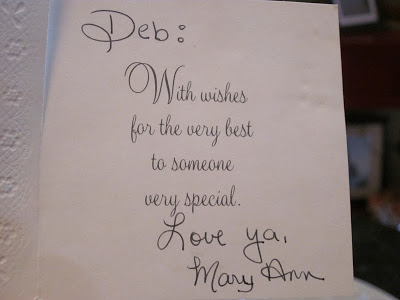 Deb:
With wishes
for the very best
to someone
very special.
Love ya,
Mary Ann